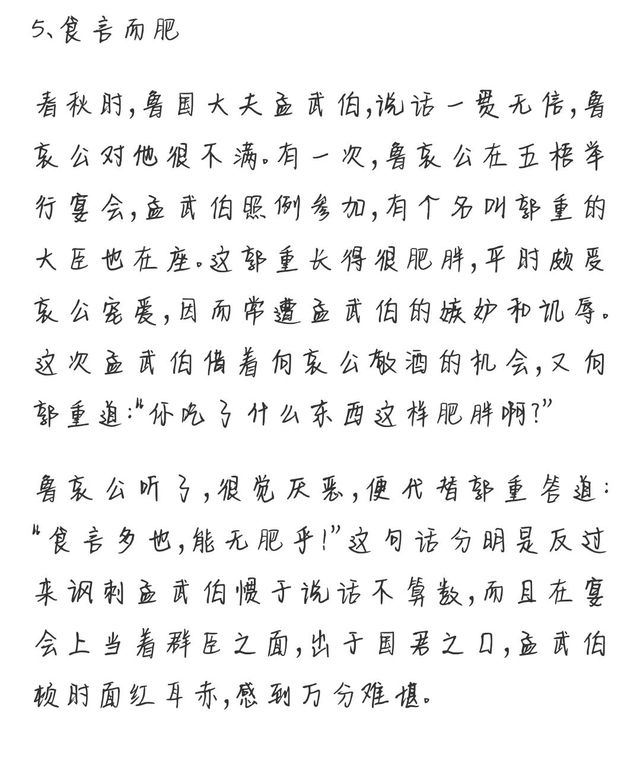 5、食言而肥
春秋时,鲁国大夫孟武伯,说话一贯无信,鲁
哀公对他很不满。有一次,鲁哀公在五梧举
行宴会,孟武伯照例参加,有个名叫郭重的
大臣也在座。这郭重长得很肥胖,平时颇受
哀公宠爱,因而常遭孟武伯的嫉妒和讥辱。
这次孟武伯借着向哀公敬酒的机会,又向
郭重道:“你吃了什么东西这样肥胖啊?”
鲁哀公听了,很觉厌恶,便代替郭重答道:
“食言多也,能无肥乎!”这句话分明是反过
来讽刺孟武伯惯于说话不算数,而且在宴
会上当着群臣之面,出于国君之口,孟武伯
顿时面红耳赤,感到万分难堪。